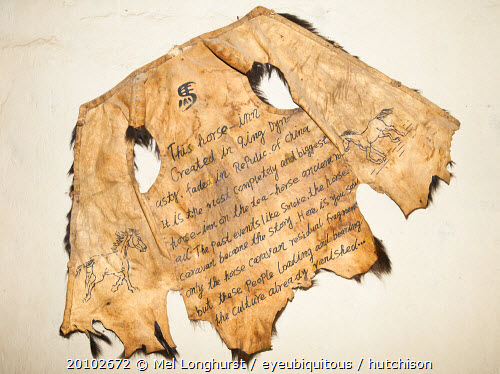 馬
This horse-inn
Created in Qing Dyn
asty faded in Repulic of China
it is the most completely and biggest
horse-inn on the tea-horse ancient
all The past events like Smoke, the horse
caravan become the Story. Here is you see
only the horse caravan residual fragment
but these People loading and hearing
the culture already vanished...
20102672 © Mel Longhurst / eyeubiquitous / hutchison